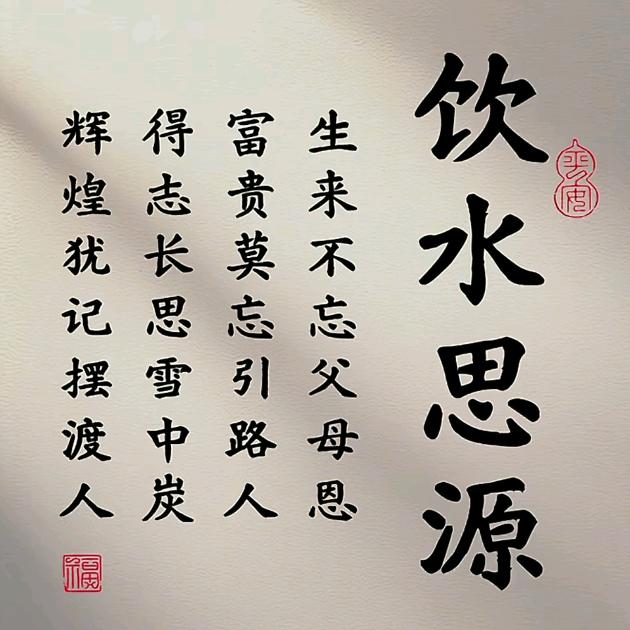 饮水思源
生来不忘父母恩
富贵莫忘引路人
得志长思雪中炭
辉煌犹记摆渡人
福